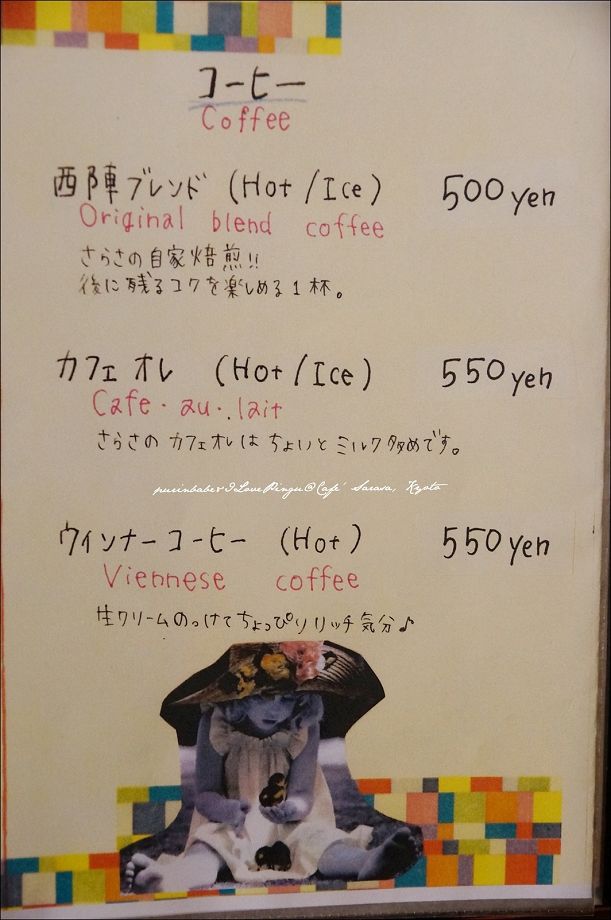 コーヒー
Coffee
西陣ブレンド (Hot/Ice) 500yen
Original blend coffee
さらさの自家焙煎!!
後に残るコクを楽しめる1杯。
カフェオレ (Hot/Ice) 550yen
Cafe・au・lait
さらさのカフェオレはちょいとミルク多めです。
purinbabe&ILovePingu@Café Sarasa, Kyoto
ウィンナーコーヒー (Hot) 550yen
Viennese coffee
生クリームのっけてちょっぴりリッチ気分♪